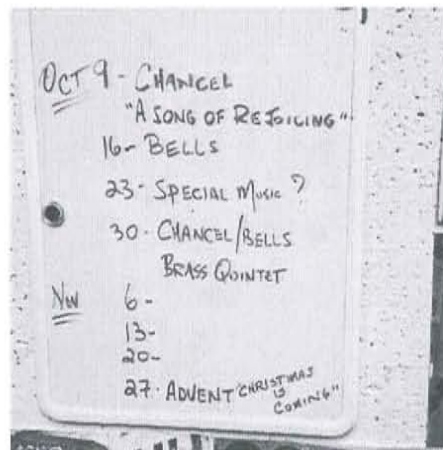 OCT 9 - CHANCEL
"A SONG OF REJOICING"
16 - BELLS
23 - SPECIAL MUSIC ?
30 - CHANCEL/BELLS
BRASS QUINTET
NOV 6 -
13 -
20 -
27 - ADVENT "CHRISTMAS
IS
COMING"